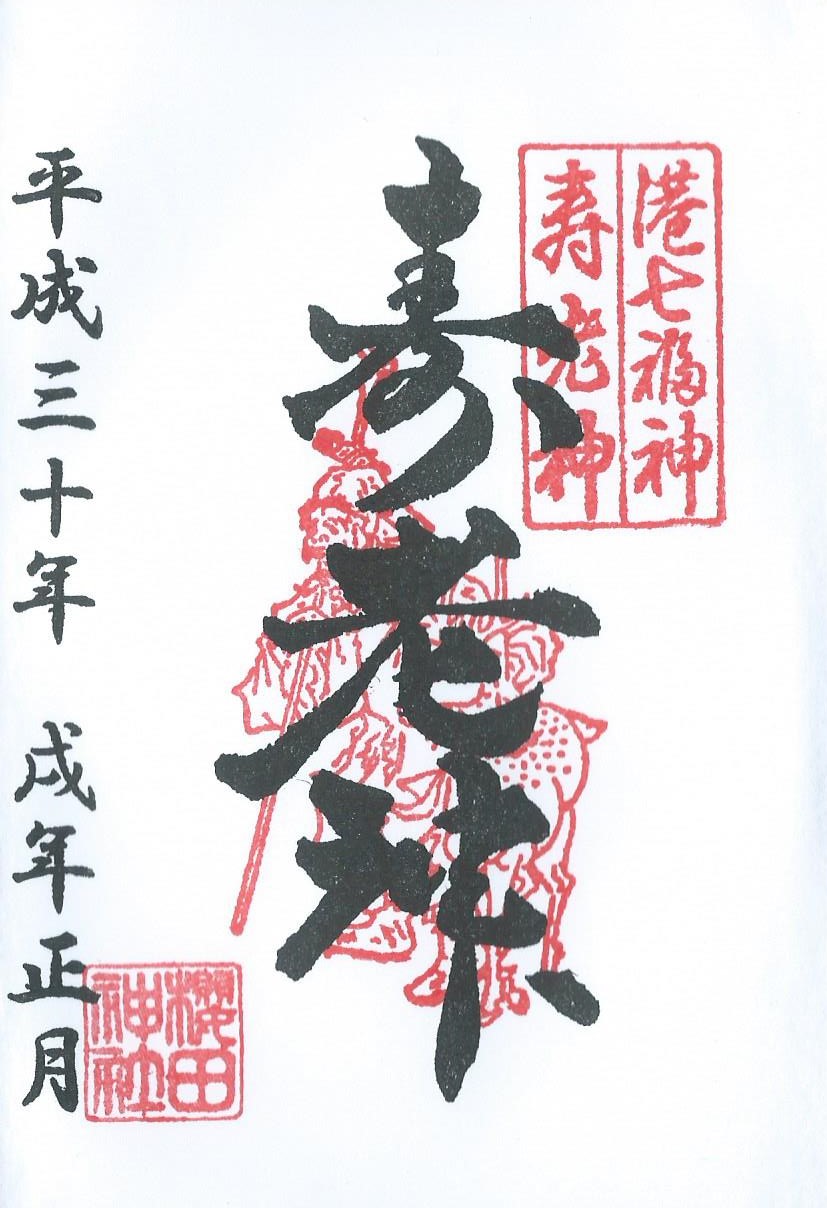 港七福神
寿老神
寿老神
平成三十年 戌年正月
櫻田
神社